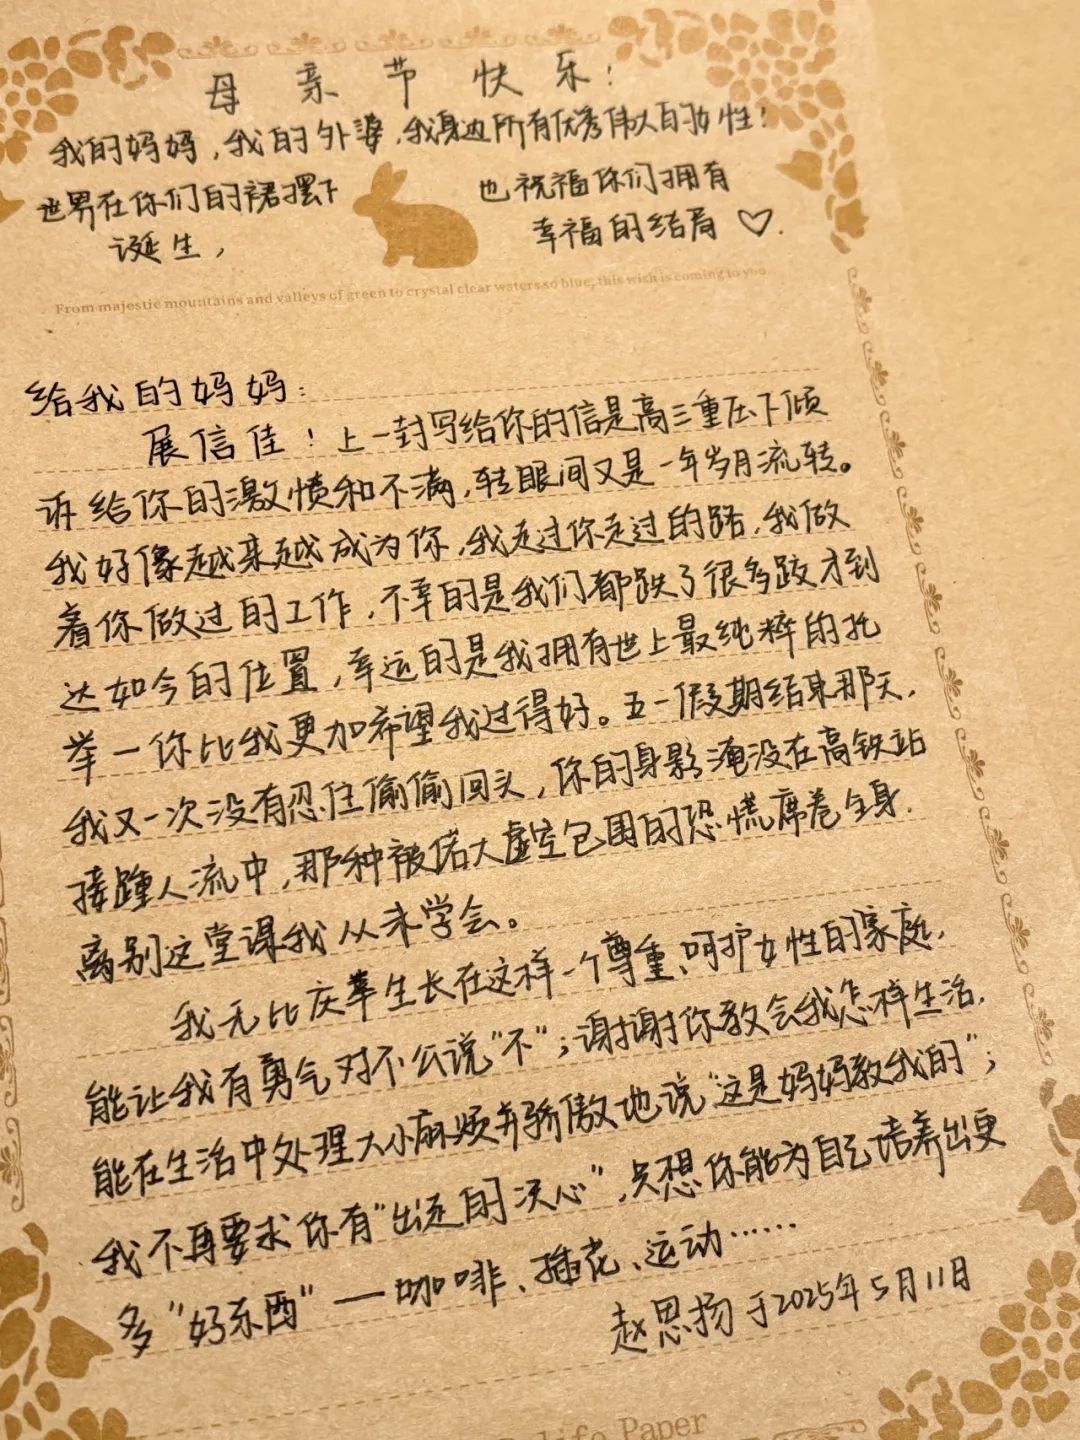 母亲节快乐！
我的妈妈，我的外婆，我身边所有优秀伟大的女性！
世界在你们的裙摆下
诞生，
也祝福你们拥有
幸福的结局♡.
From majestic mountains and valleys of green to crystal clear waters so blue, this wish is coming to you
给我的妈妈：
展信佳！上一封写给你的信是高三重压下倾
诉给你的激愤和不满，转眼间又是一年岁月流转。
我好像越来越成为你，我走过你走过的路，我做
着你做过的工作，不幸的是我们都跌了很多跤才到
达如今的位置，幸运的是我拥有世上最纯粹的托
举一你比我更加希望我过得好。五一假期结束那天，
我又一次没有忍住偷偷回头，你的身影淹没在高铁站
接踵人流中，那种被偌大虚空包围的恐慌席卷全身.
离别这堂课我从未学会。
我无比庆幸生长在这样一个尊重、呵护女性的家庭，
能让我有勇气对不公说"不"；谢谢你教会我怎样生活，
能在生活中处理大小麻烦并骄傲地说"这是妈妈教我的"；
我不再要求你有"出走的决心"，只想你能为自己培养出更
多"好东西"—咖啡、插花、运动……
赵思扬于2025年5月11日
Life Paper